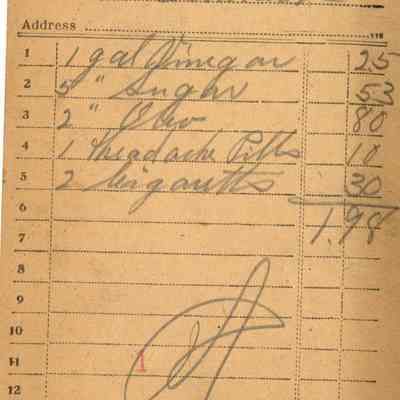 Address
1 1 gal Vinegar 25
2 5 " Sugar 53
3 2 " 80
4 1 Headache Pills 10
5 2 Cigaretts 30
6
7 1.98
8
9
10
11 1
12